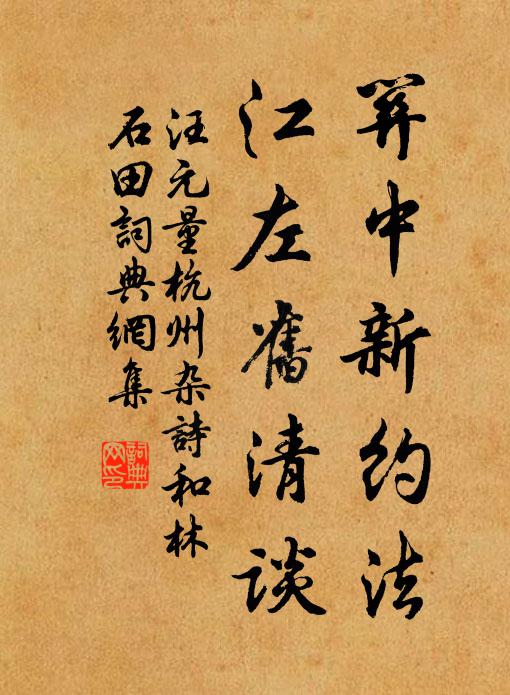 関中新约法
江左舊清談
汪元量杭州杂詩和林
石田詞典網集
詞典网印